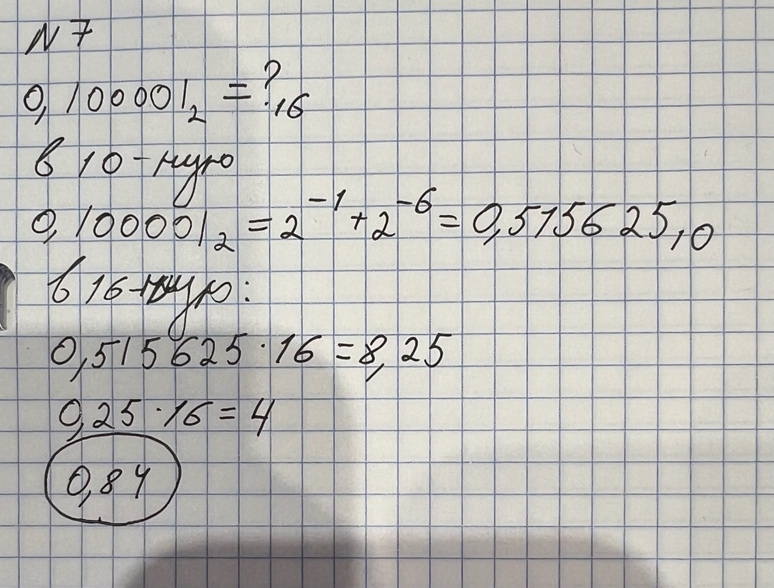 N 7
0,100001₂ = ?₁₆
в 10-ную
0,100001₂ = 2⁻¹ + 2⁻⁶ = 0,515625₁₀
в 16-ную:
0,515625 · 16 = 8,25
0,25 · 16 = 4
0,84